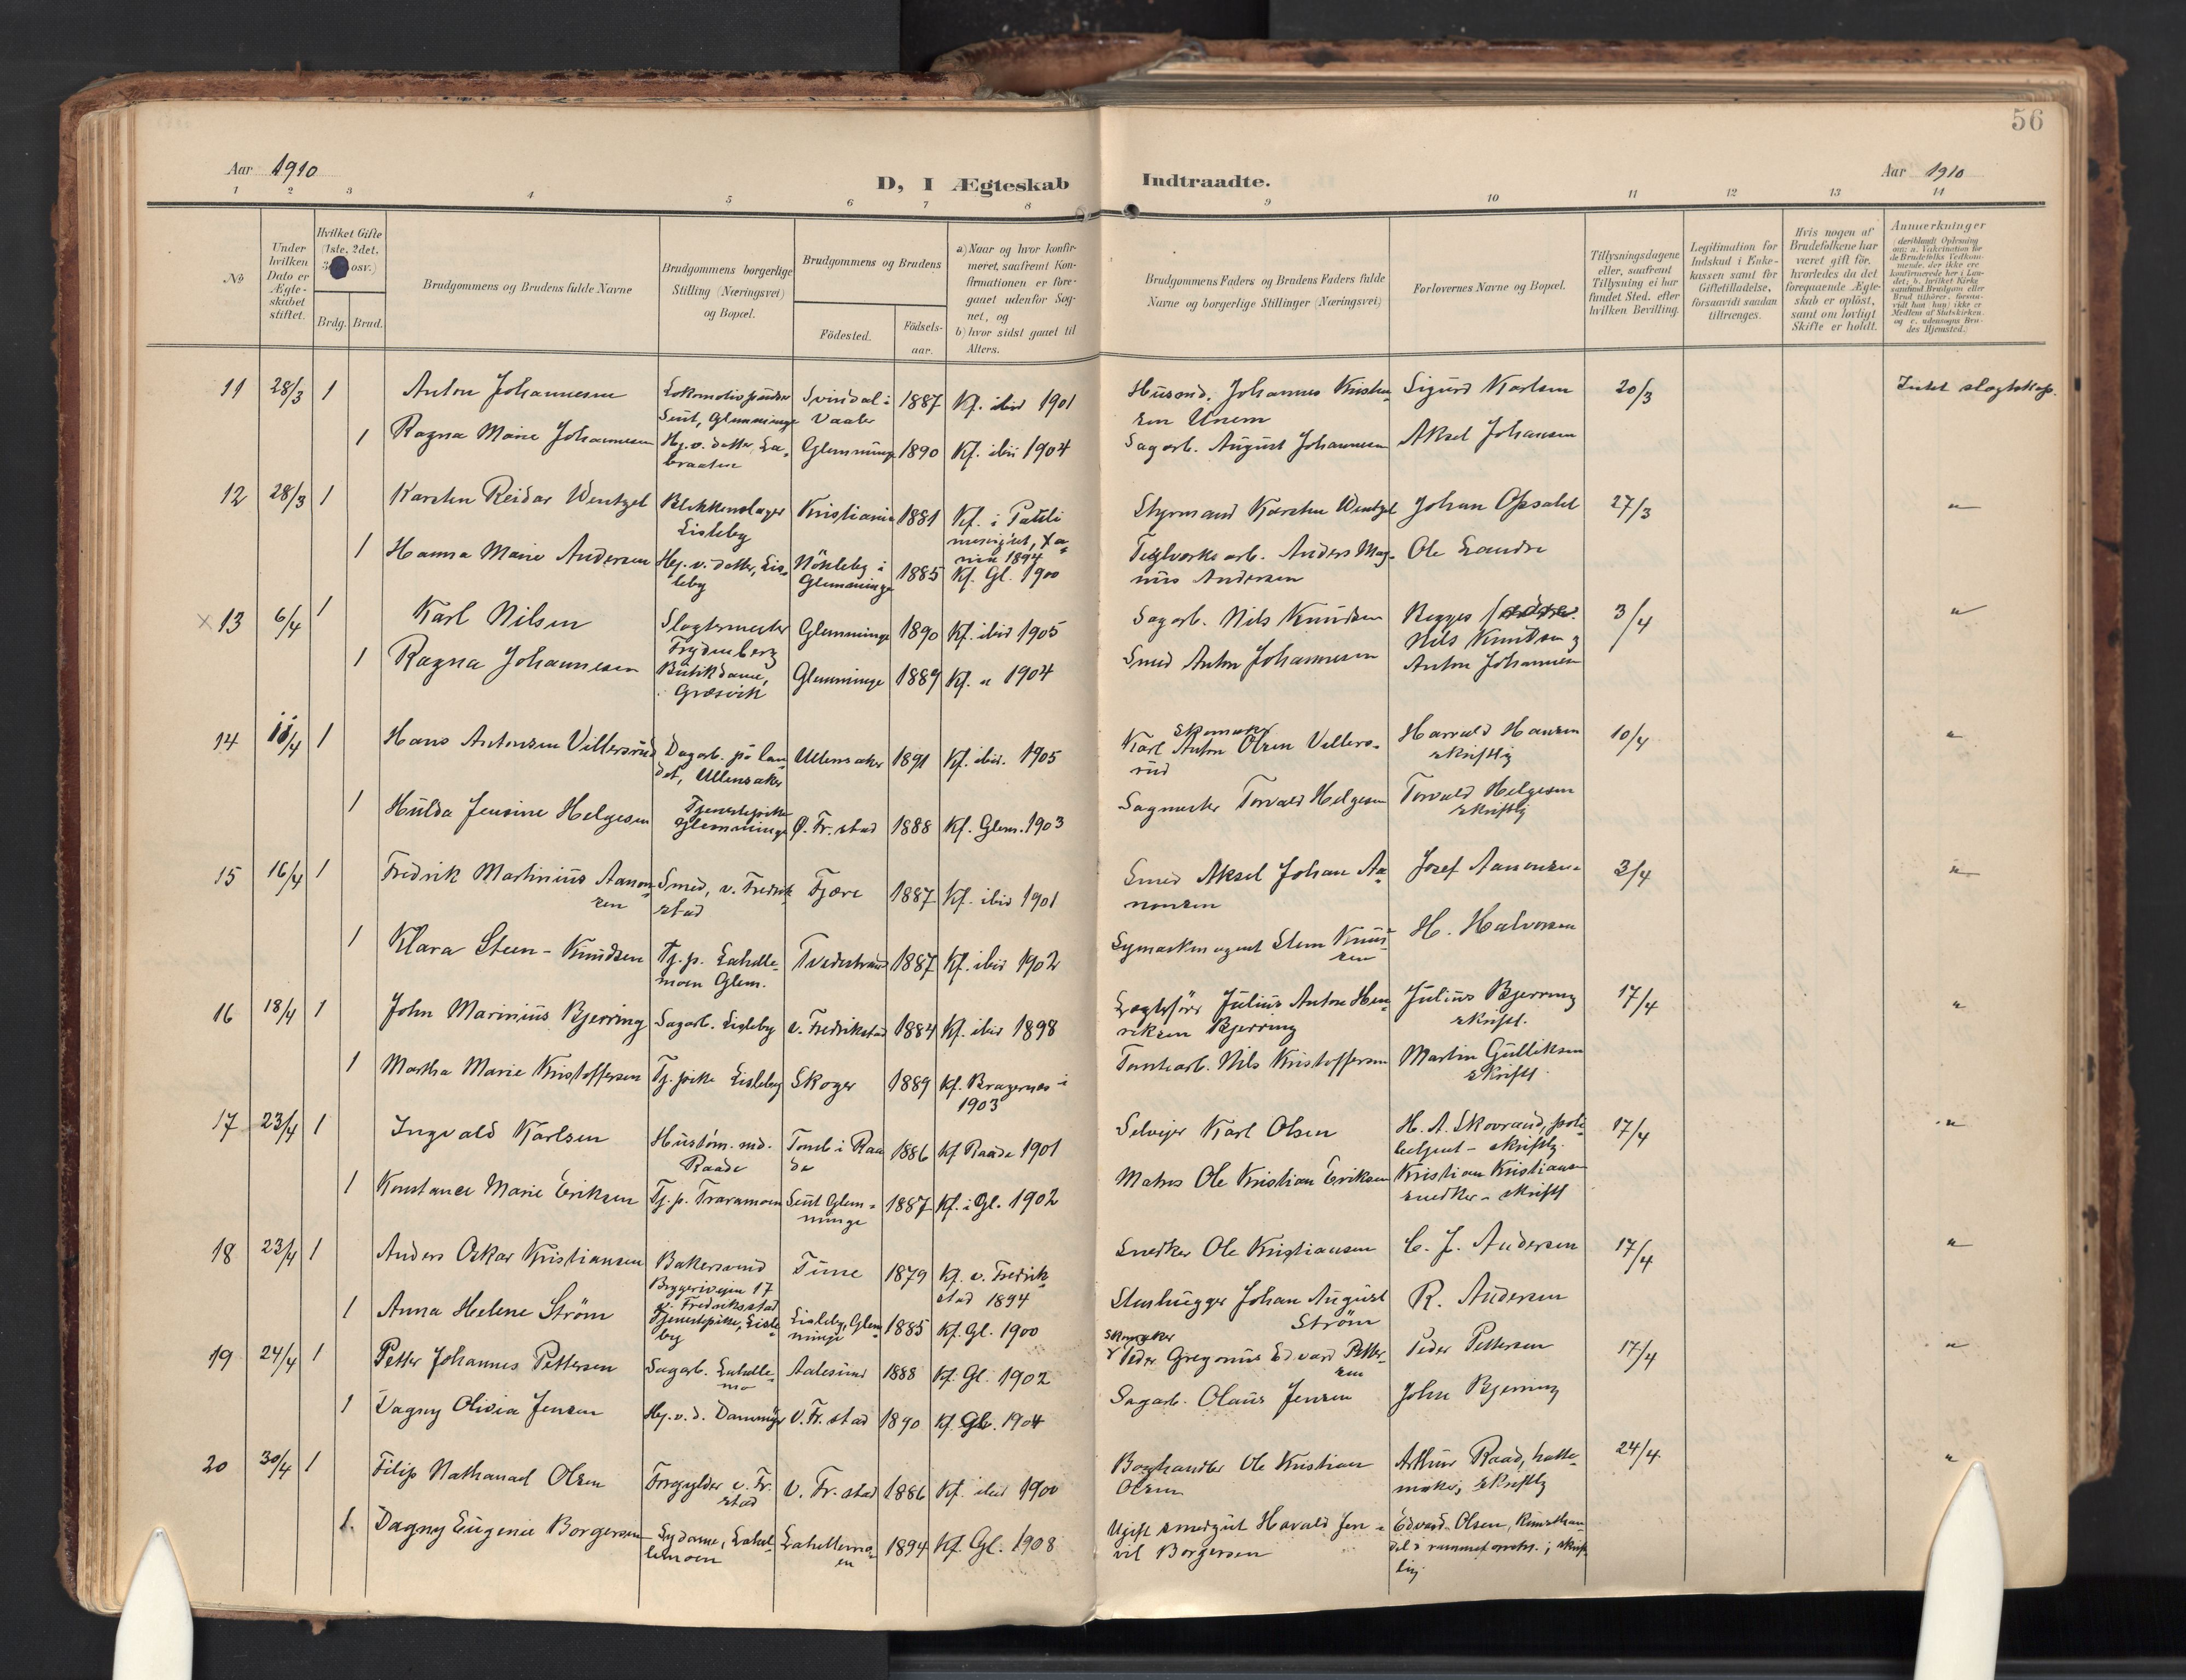 56
Aar 1910
D, I Ægteskab Indtraadte.
Aar 1910
1 2 3 4 5 6 7 8 9 10 11 12 13 14
No
Under hvilken Dato er Ægteskabet stiftet.
Hvilket Gifte (1ste, 2det, osv.)
Brdg. Brud.
Brudgommens og Brudens fulde Navne
Brudgommens borgerlige Stilling (Næringsvei) og Bopæl.
Brudgommens og Brudens
Födested.
Födselsaar.
a) Naar og hvor konfirmeret, saafremt Konfirmationen er foregaaet udenfor Sognet, og
b) hvor sidst gaaet til Alters.
Brudgommens Faders og Brudens Faders fulde Navne og borgerlige Stillinger (Næringsvei)
Forlovernes Navne og Bopæl.
Tillysningsdagene eller, saafremt Tillysning ei har fundet Sted, efter hvilken Bevilling.
Legitimation for Indskud i Enkekassen samt for Giftetilladelse, forsaavidt saadan tiltrænges.
Hvis nogen af Brudefolkene har været gift för, hvorledes da det foregaaende Ægteskab er oplöst, samt om lovligt Skifte er holdt.
Anmerkninger
(deriblandt Oplysning om: a. Vakcination for de Brudefolks Vedkommende, der ikke ere konfirmerede her i Landet; b. hvilket Kirkesamfund Brudgom eller Brud tilhörer, forsaavidt han (hun) ikke er Medlem af Statskirken, og c. udensogns Brudes Hjemsted.)
11 28/3 1 Anton Johannesen Lokomotivpudser Seut, Glemminge Svindal i Vaaler 1887 Kf. ibid 1901 Husmd. Johannes Kristensen Unem Sigurd Karlsen 20/3 Intet slagtskap.
1 Ragna Marie Johannesen Hj. v. datter, Labraaten Glemminge 1890 Kf. ibi 1904 Sagarb. August Johannesen Aksel Johansen
12 28/3 1 Karsten Reidar Wentzel Blikkenslager Lisleby Kristiania 1881 Kf. i 1894 Styrmand Karsten Wentzel Johan Opsahl 27/3 "
1 Hanna Marie Andersen Hj. v. datter, Lisleby Nökleby i Glemminge 1885 Kf. Gl. 1900 Teglverks arb. Anders Magnus Andersen Ole Sandre
x 13 6/4 1 Karl Nilsen Slagtermester Frydenberg Glemminge 1890 Kf. ibid 1905 Sagarb. Nils Knudsen Begges fædre: Nils Knudsen og 3/4 "
1 Ragna Johannesen Butikdame, Græsvik Glemminge 1889 Kf. " 1904 Smed Anton Johannesen Anton Johannesen
14 11/4 1 Hans Antonsen Villersrud Dagarb. på landet, Ullensaker Ullensaker 1891 Kf. ibid. 1905 Skomaker Karl Anton Olsen Villersrud Harvald Hansen skriftlig 10/4 "
1 Hulda Jensine Helgesen Tjenestepike Glemminge Ø. Fr. stad 1888 Kf. Glem. 1903 Sagmester Torvald Helgesen Torvald Helgesen skriftlig
15 16/4 1 Fredrik Martinius Aanonsen Smed, v. Fredrikstad Fjære 1887 Kf. ibid 1901 Smed Aksel Johan Aanonsen Josef Aanonsen 3/4 "
1 Klara Steen-Knudsen Tj. p. Lahellemoen Glem. Tvedestrand 1887 Kf. ibid 1902 Symaskinagent Steen Knudsen H. Halvorsen
16 18/4 1 John Marinius Bjerring Sagarb. Lisleby v. Fredrikstad 1884 Kf. ibid 1898 Lægtefører Julius Anton Henriksen Bjerring Julius Bjerring skriftl. 17/4 "
1 Martha Marie Kristoffersen Tj. pike Lisleby Skoger 1889 Kf. Bragernes i 1903 Tomtearb. Nils Kristoffersen Martin Gulliksen skriftl.
17 23/4 1 Ingvald Karlsen Hustöm. md. Raade Tomb i Raade 1886 Kf Raade 1901 Selveier Karl Olsen H. A. Skovrand, politibetjent - skriftlig 17/4 "
1 Konstance Marie Eriksen Tj. p. Traramoen Seut Glemminge 1887 Kf. i Gl. 1902 Matros Ole Kristian Eriksen Kristian Kristiansen snedker - skriftl
18 23/4 1 Anders Oskar Kristiansen Bakersvend Bryggeriveien 17 v. Fredrikstad Tune 1879 Kf. v. Fredrikstad 1894 Snedker Ole Kristiansen C. J. Andersen 17/4 "
1 Anna Helene Ström Tjenestepike, Lisleby Lisleby, Glemminge 1885 Kf. Gl. 1900 Stenhugger Johan August Ström R. Andersen
19 24/4 1 Petter Johannes Pettersen Sagarb. Lahellemo Aalesund 1888 Kf. Gl. 1902 Skomaker Peder Gregorius Edvard Pettersen Peder Pettersen 17/4 "
1 Dagny Olivia Jensen Hj. v. d. Dammyr V. Fr. stad 1890 Kf. Gl. 1904 Sagarb. Olaus Jensen John Bjerring
20 30/4 1 Filip Nathanael Olsen Forgylder v. Fr. stad V. Fr. stad 1886 Kf. ibid 1900 Boghandler Ole Kristian Olsen Arthur Raad, hattemaker, skriftlig 24/4 "
1. Dagny Eugenie Borgersen Sydame, Lahellemoen Lahellemoen 1894 Kf. Gl. 1908 Ugift smedgut Harald Jenvil Borgersen Edvard Olsen, skriftlig